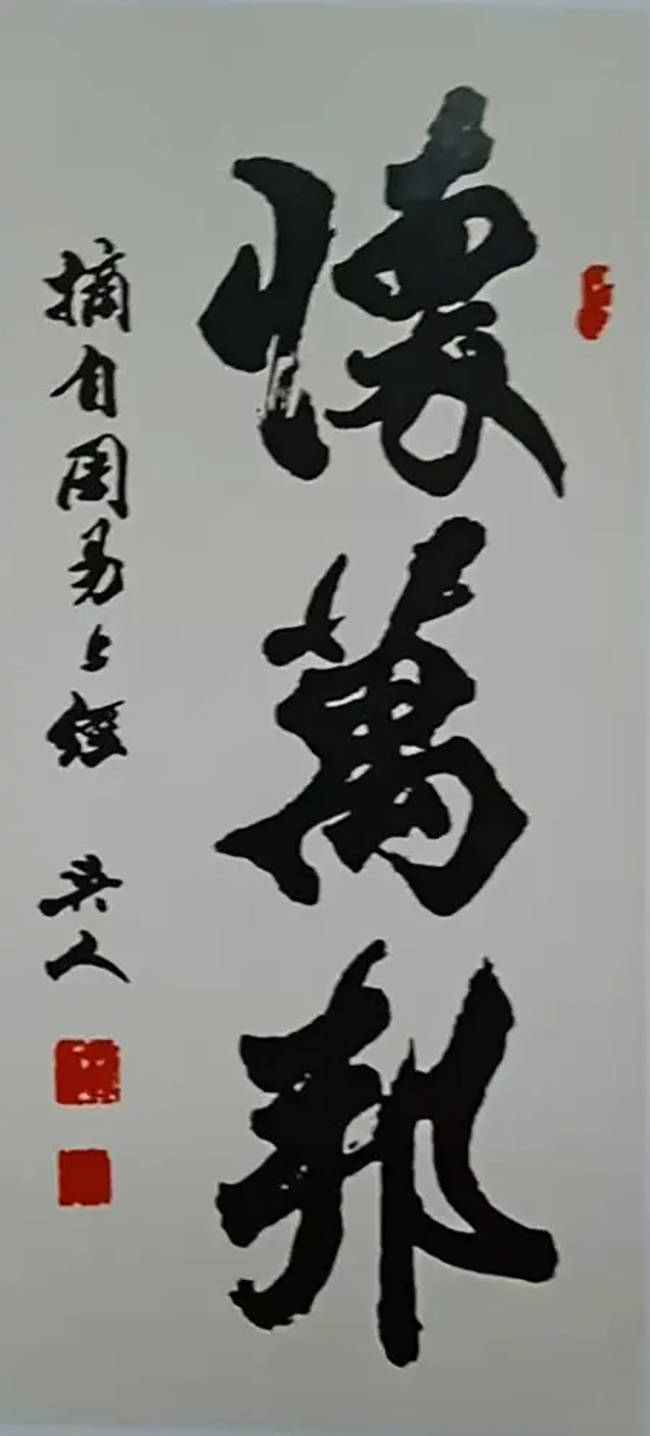 懷萬邦
摘自周易上經
人